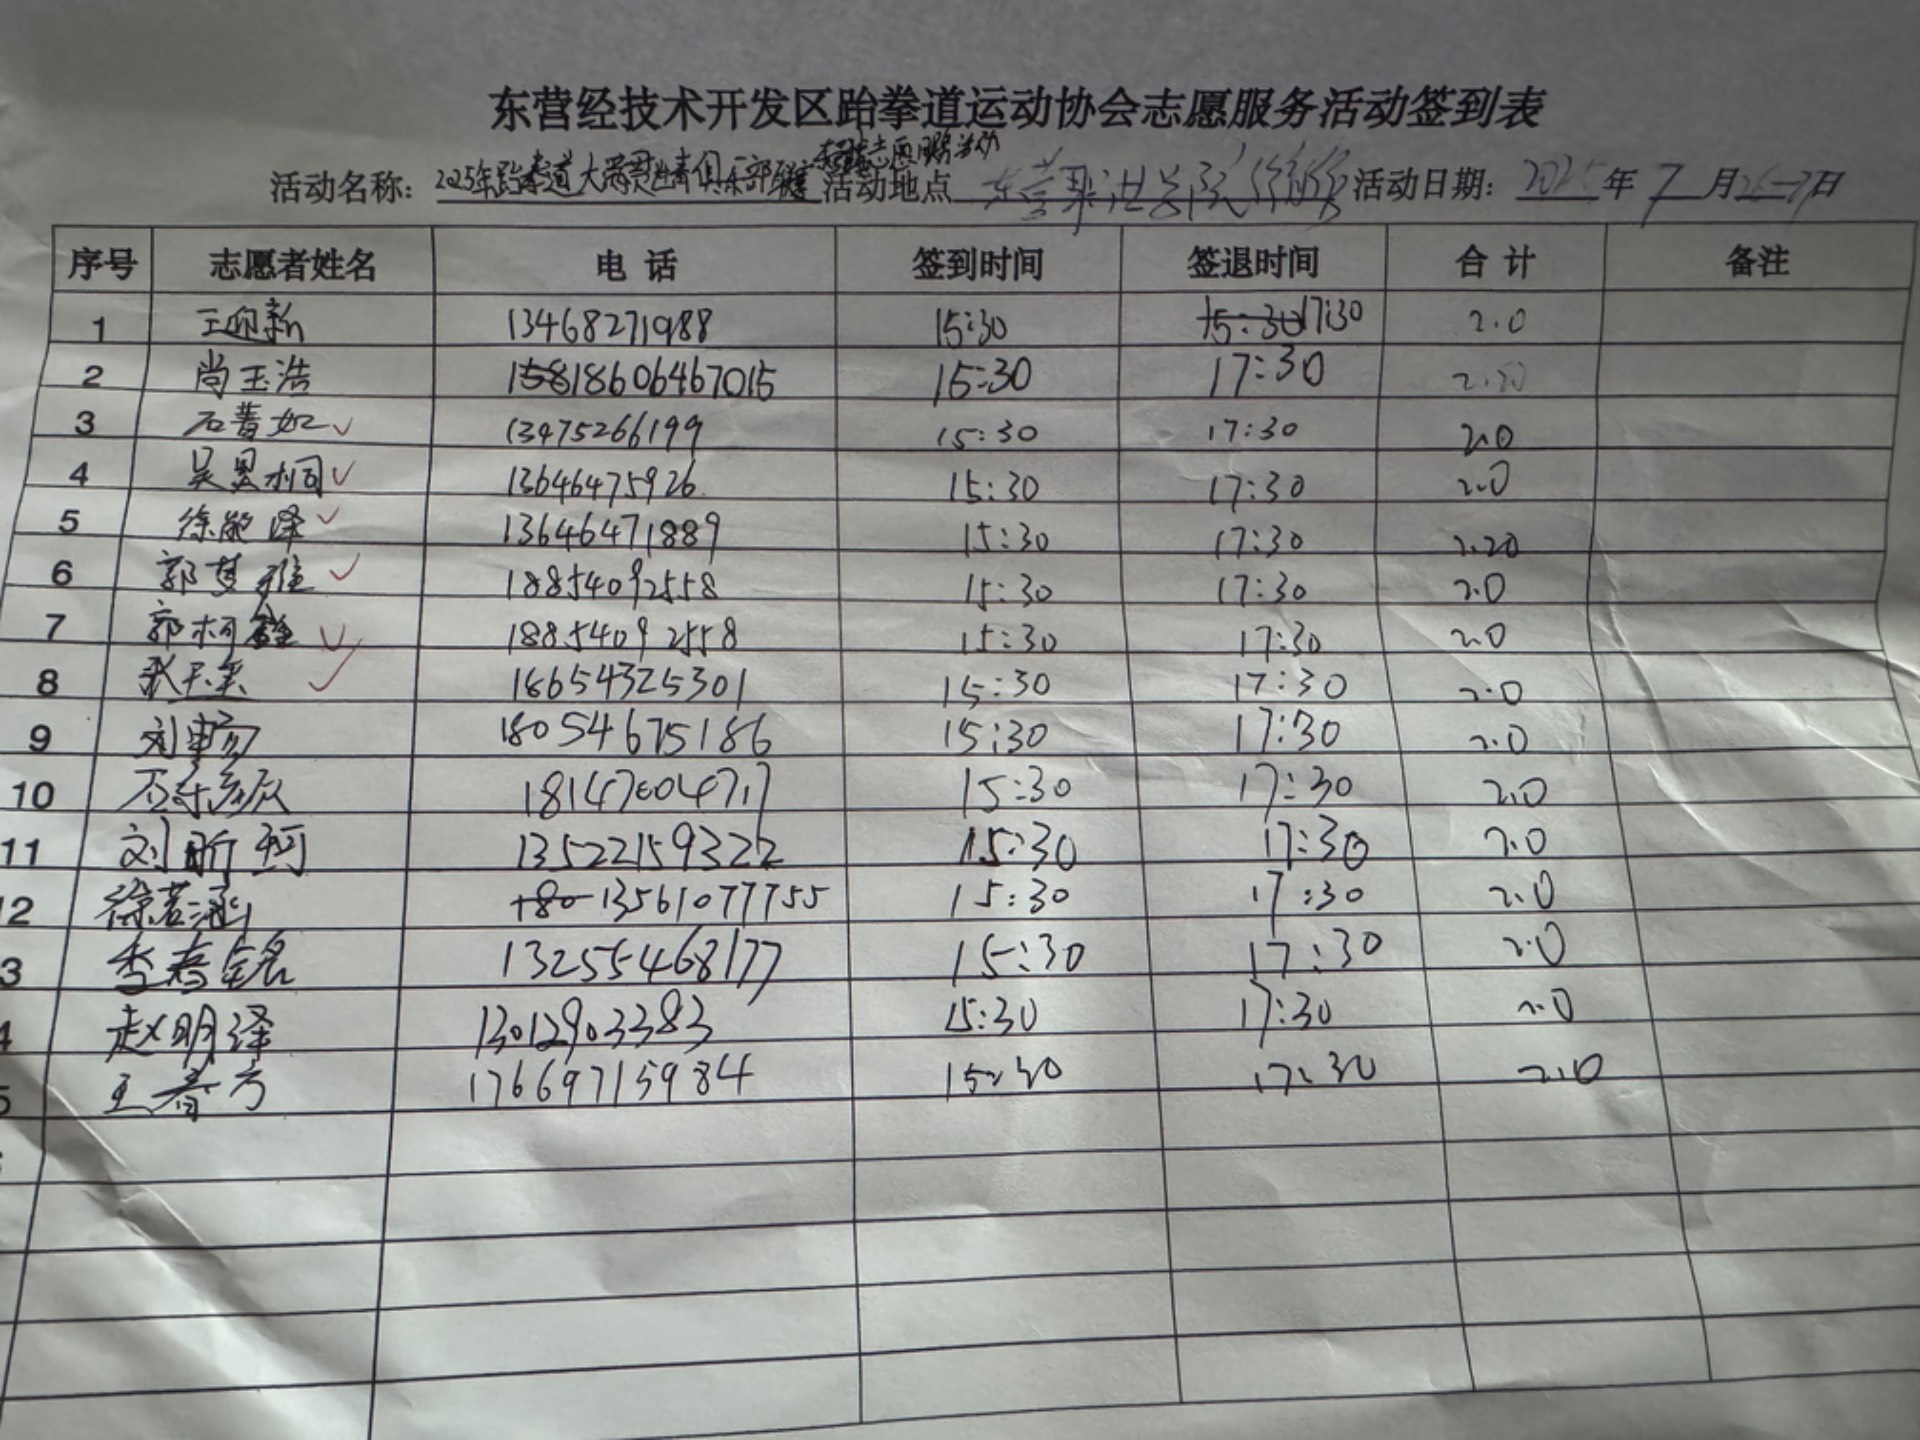 东营经技术开发区跆拳道运动协会志愿服务活动签到表
志愿服务活动
活动名称: 2025年跆拳道大 俱乐部 活动地点 东营 活动日期: 2025 年 7 月 26-27日
序号 志愿者姓名 电 话 签到时间 签退时间 合 计 备注
1 王迎新 13468271988 15:30 15:30 17:30 2.0
2 尚玉浩 158 18606467015 15:30 17:30 2.0
3 石普如 ✓ 13475266199 15:30 17:30 2.0
4 吴昱桐 ✓ 13646475926 15:30 17:30 2.0
5 徐 泽 ✓ 13646471889 15:30 17:30 2.20
6 郭梦雅 ✓ 18854092558 15:30 17:30 2.0
7 郭柯鑫 ✓ 18854092558 15:30 17:30 2.0
8 张天奕 ✓ 18654325301 15:30 17:30 2.0
9 刘畅 18054675186 15:30 17:30 2.0
10 18147604717 15:30 17:30 2.0
11 刘昕珂 13522159322 15:30 17:30 2.0
12 徐若涵 +80 13561077755 15:30 17:30 2.0
3 李春铭 13255468177 15:30 17:30 2.0
4 赵明泽 13012903383 15:30 17:30 2.0
5 王春方 17669715984 15:30 17:30 2.0